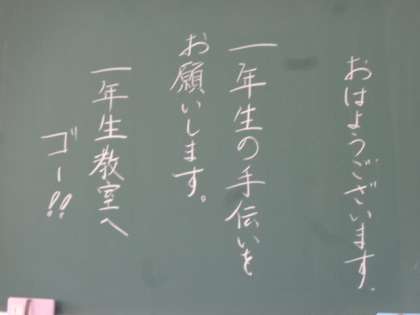 おはようございます。
一年生の手伝いを
お願いします。
一年生教室へ
ゴー!!